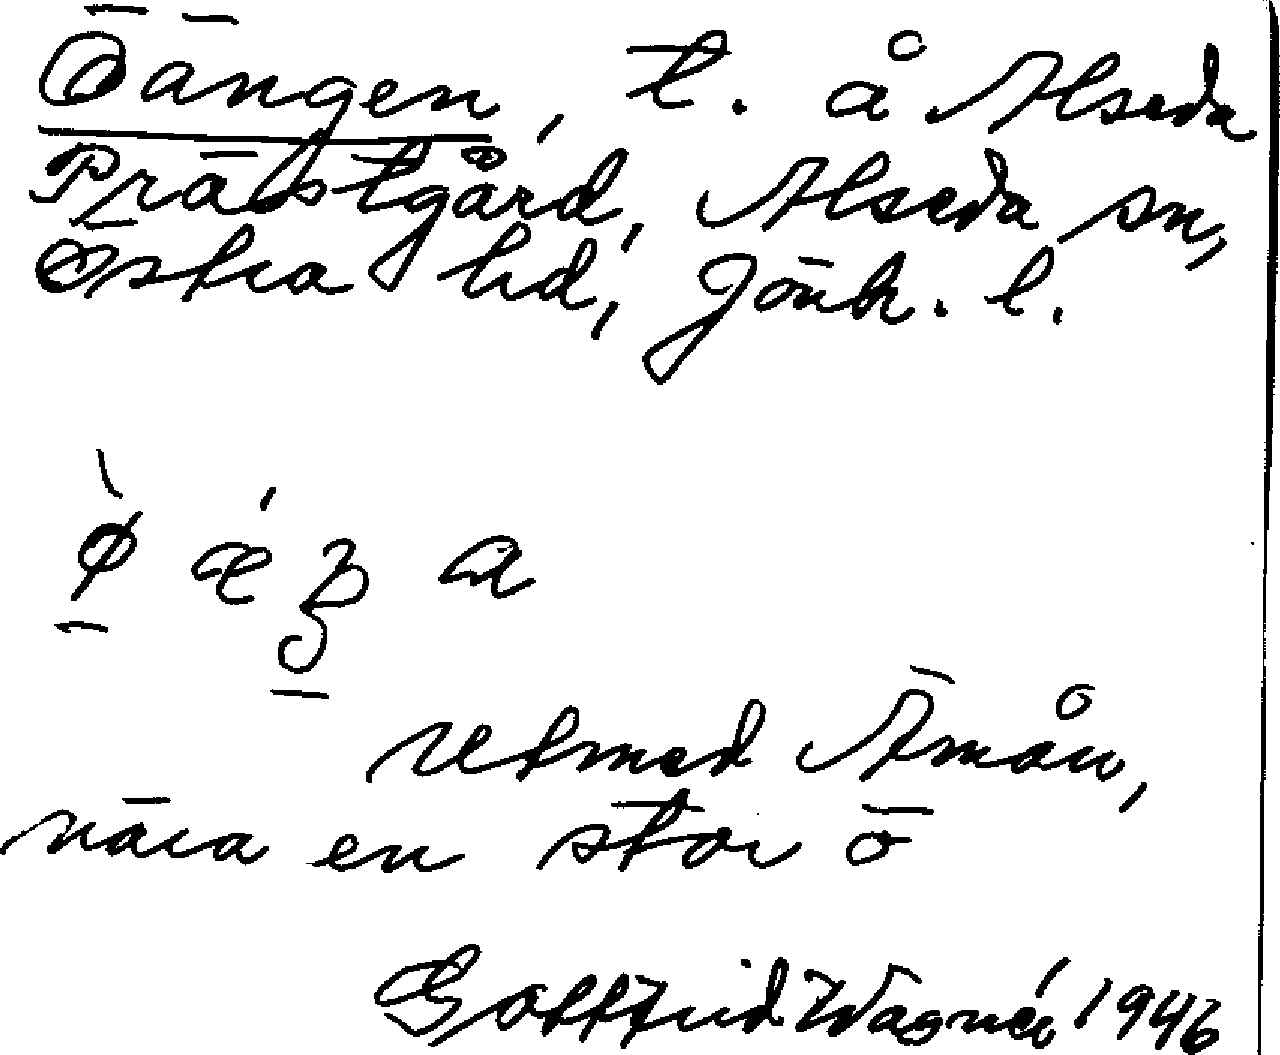 Öängen, t. å Alseda
Prästgård, Alseda sn,
Östra hd, Jönk. l.
utmed Ämån,
nära en stor ö
Gottfrid Wagnér 1946